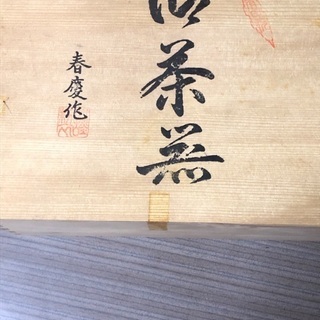 茶器
春慶作